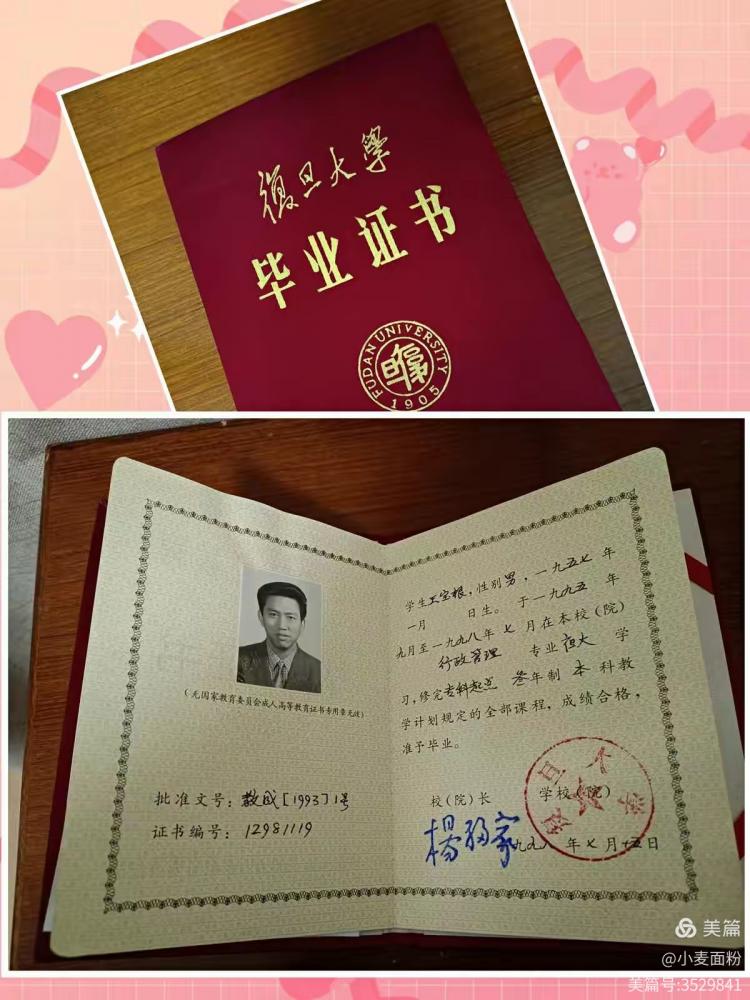 復旦大學
毕业证书
FUDAN UNIVERSITY
1905
(无国家教育委员会成人高等教育证书专用章无效)
批准文号：教成[1993]1号
证书编号：12981119
学生王宝根，性别男，一九五七年
一月 日生。于一九九五年
九月至一九九八年七月在本校(院)
行政管理 专业夜大学
习，修完专科起点 叁年制本科教
学计划规定的全部课程，成绩合格，
准予毕业。
校(院)长 学校(院)
楊福家
一九九八年七月十五日
美篇
@小麦面粉
美篇号:3529841